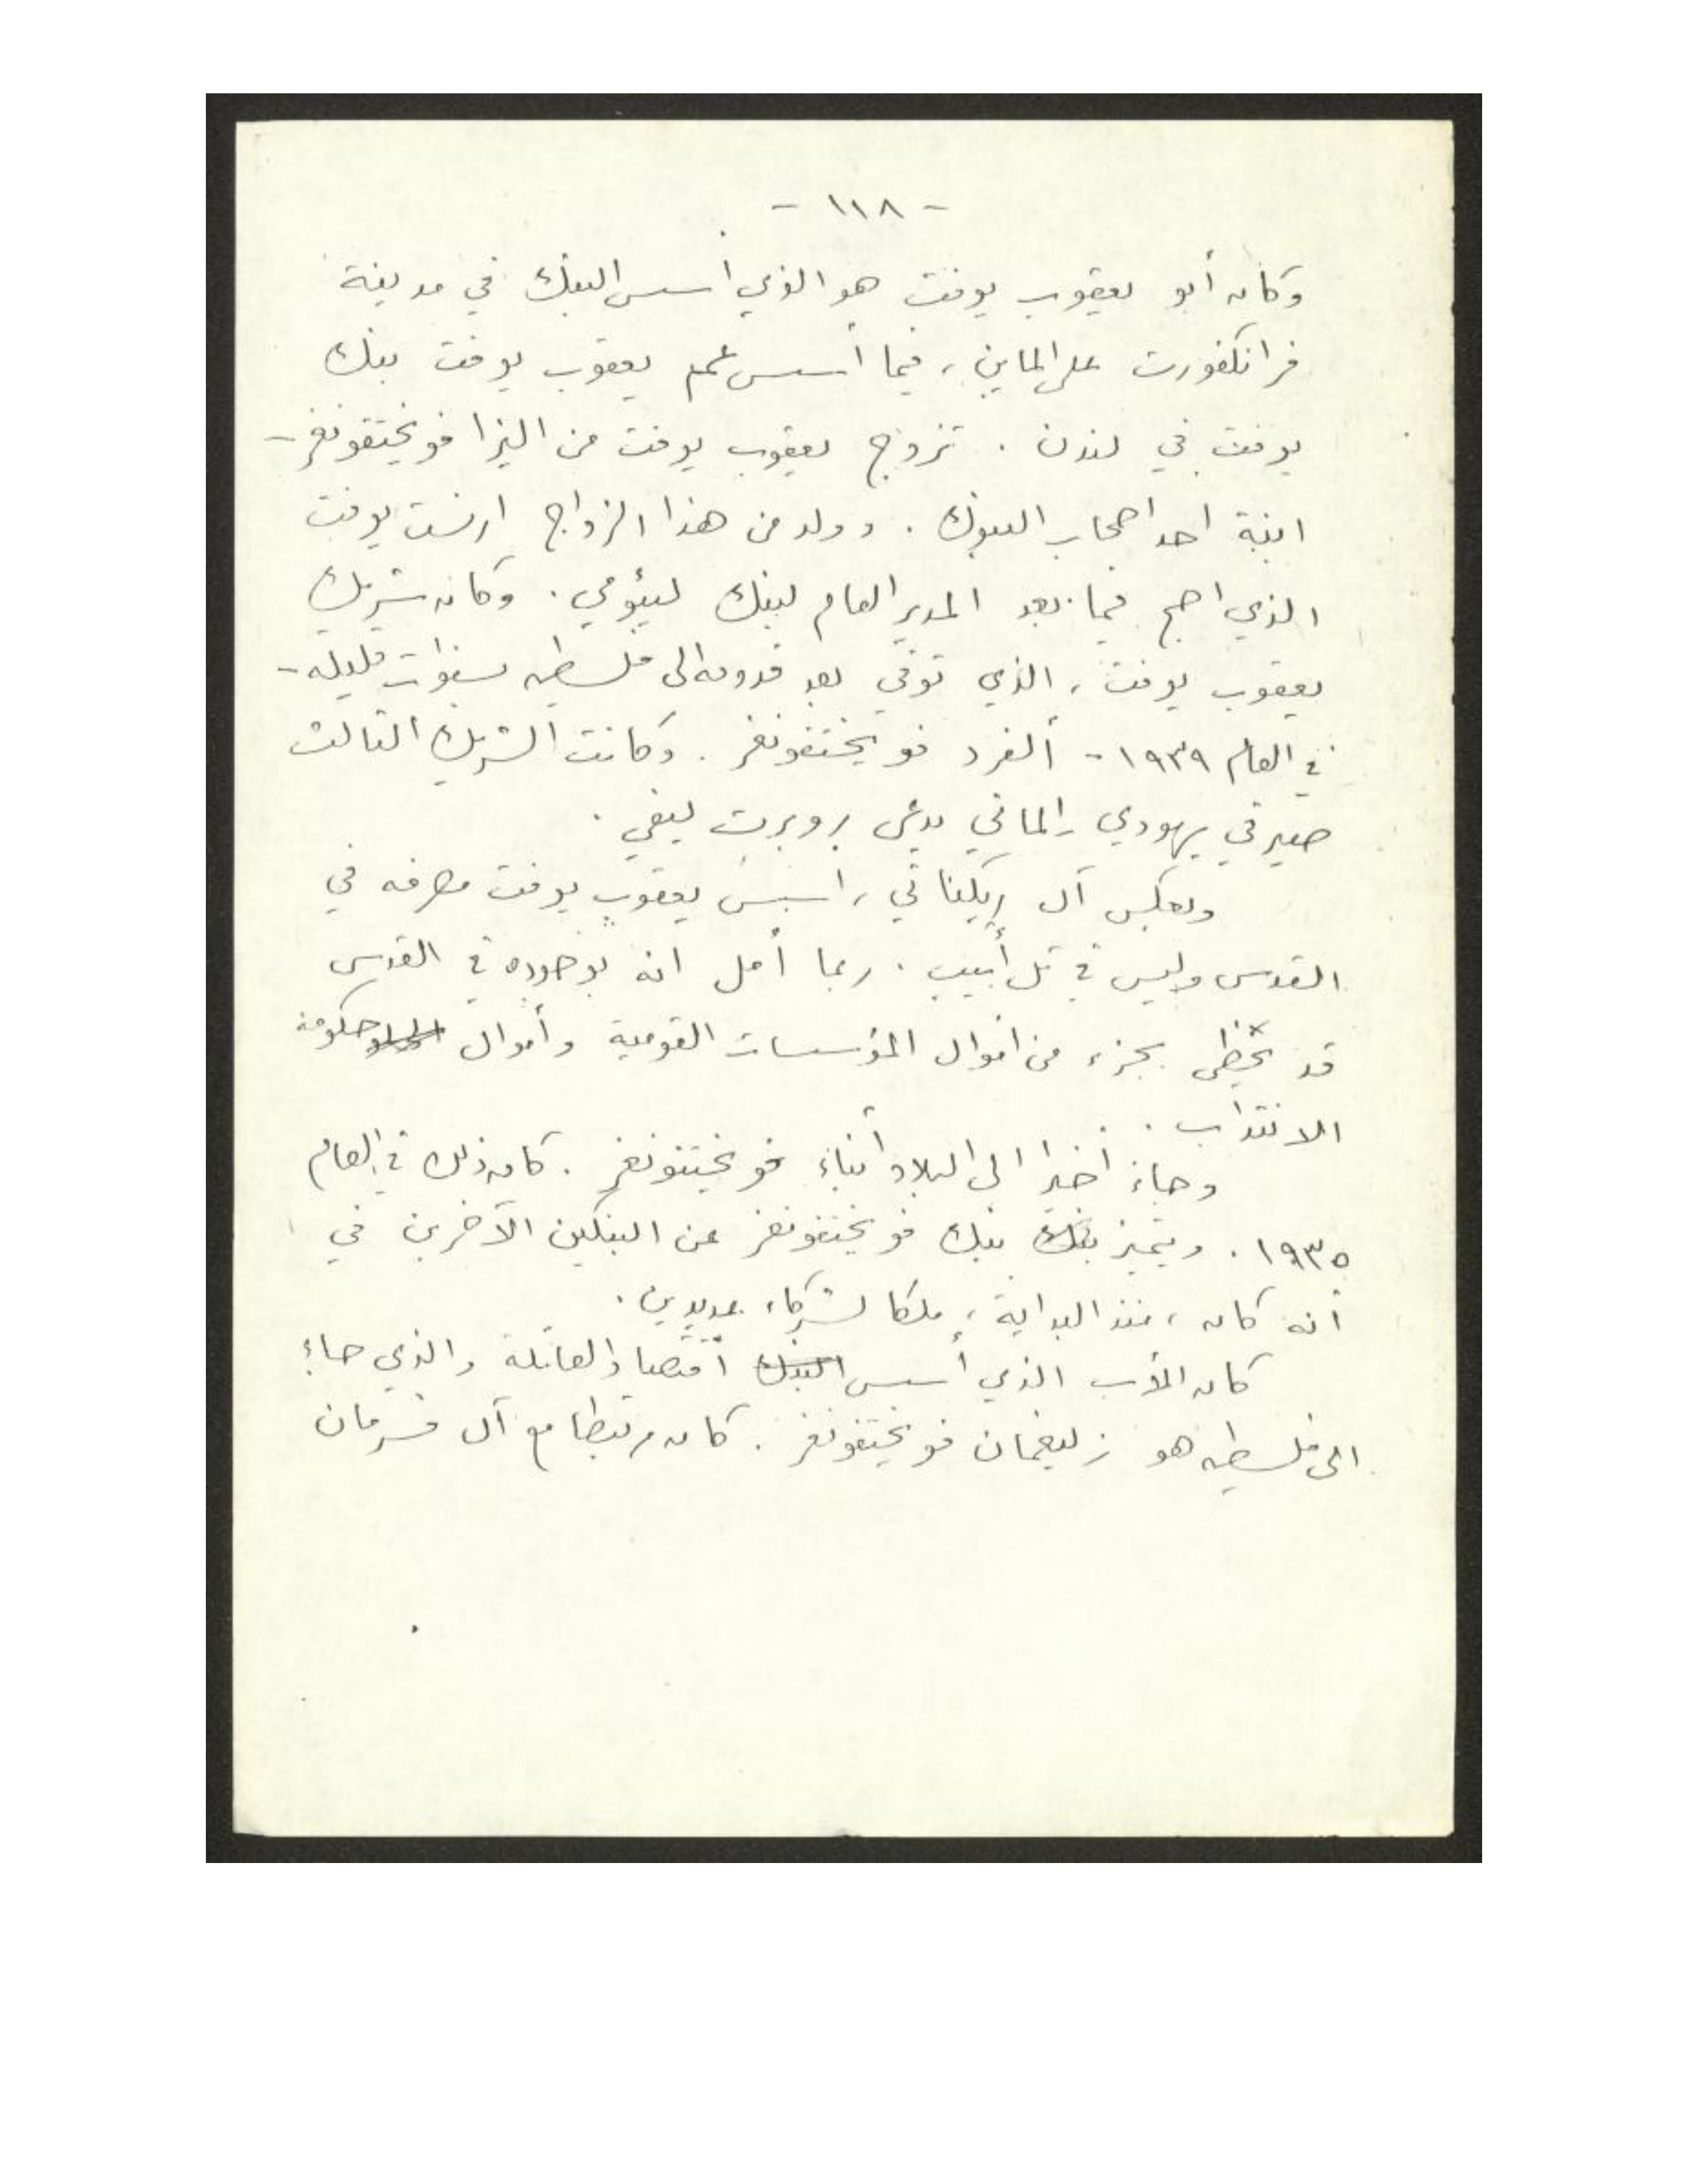 - ١١٨ -
وكان أبو يعقوب يوفت هو الذي اسس البنك في مدينة
فرانكفورت على الماين، فيما أسس عم يعقوب يوفت بنك
يوفت في لندن . تزوج يعقوب يوفت من اليزا فويختفونغر -
ابنة احد اصحاب البنوك . وولد من هذا الزواج ارنست يوفت
الذي اصبح فيما بعد المدير العام لبنك ليؤمي . وكان شريك
يعقوب يوفت، الذي توفي بعد قدومه الى فلسطين بسنوات قليلة -
في العام ١٩٣٩ - ألفرد فويختفونغر . وكانت الشريك الثالث
صيرفي يهودي الماني يدعى روبرت ليفي .
وبعكس آل ريكناتي، اسس يعقوب يوفت مصرفه في
القدس وليس في تل أبيب . ربما أمل انه بوجوده في القدس
قد يحظى بجزء من اموال المؤسسات القومية وأموال حكومة
الانتداب .
وجاء اخيرا الى البلاد أبناء فويختفونغر . كان ذلك في العام
١٩٣٥ . ويتميز بنك بنك فويختفونغر عن البنكين الآخرين في
أنه كان ، منذ البداية ، ملكا لشركاء عديدين .
كان الأب الذي أسس البنك اقتصاد العائلة والذي جاء
الى فلسطين هو زليغمان فويختفونغر . كان مرتبطا مع آل فسرمان